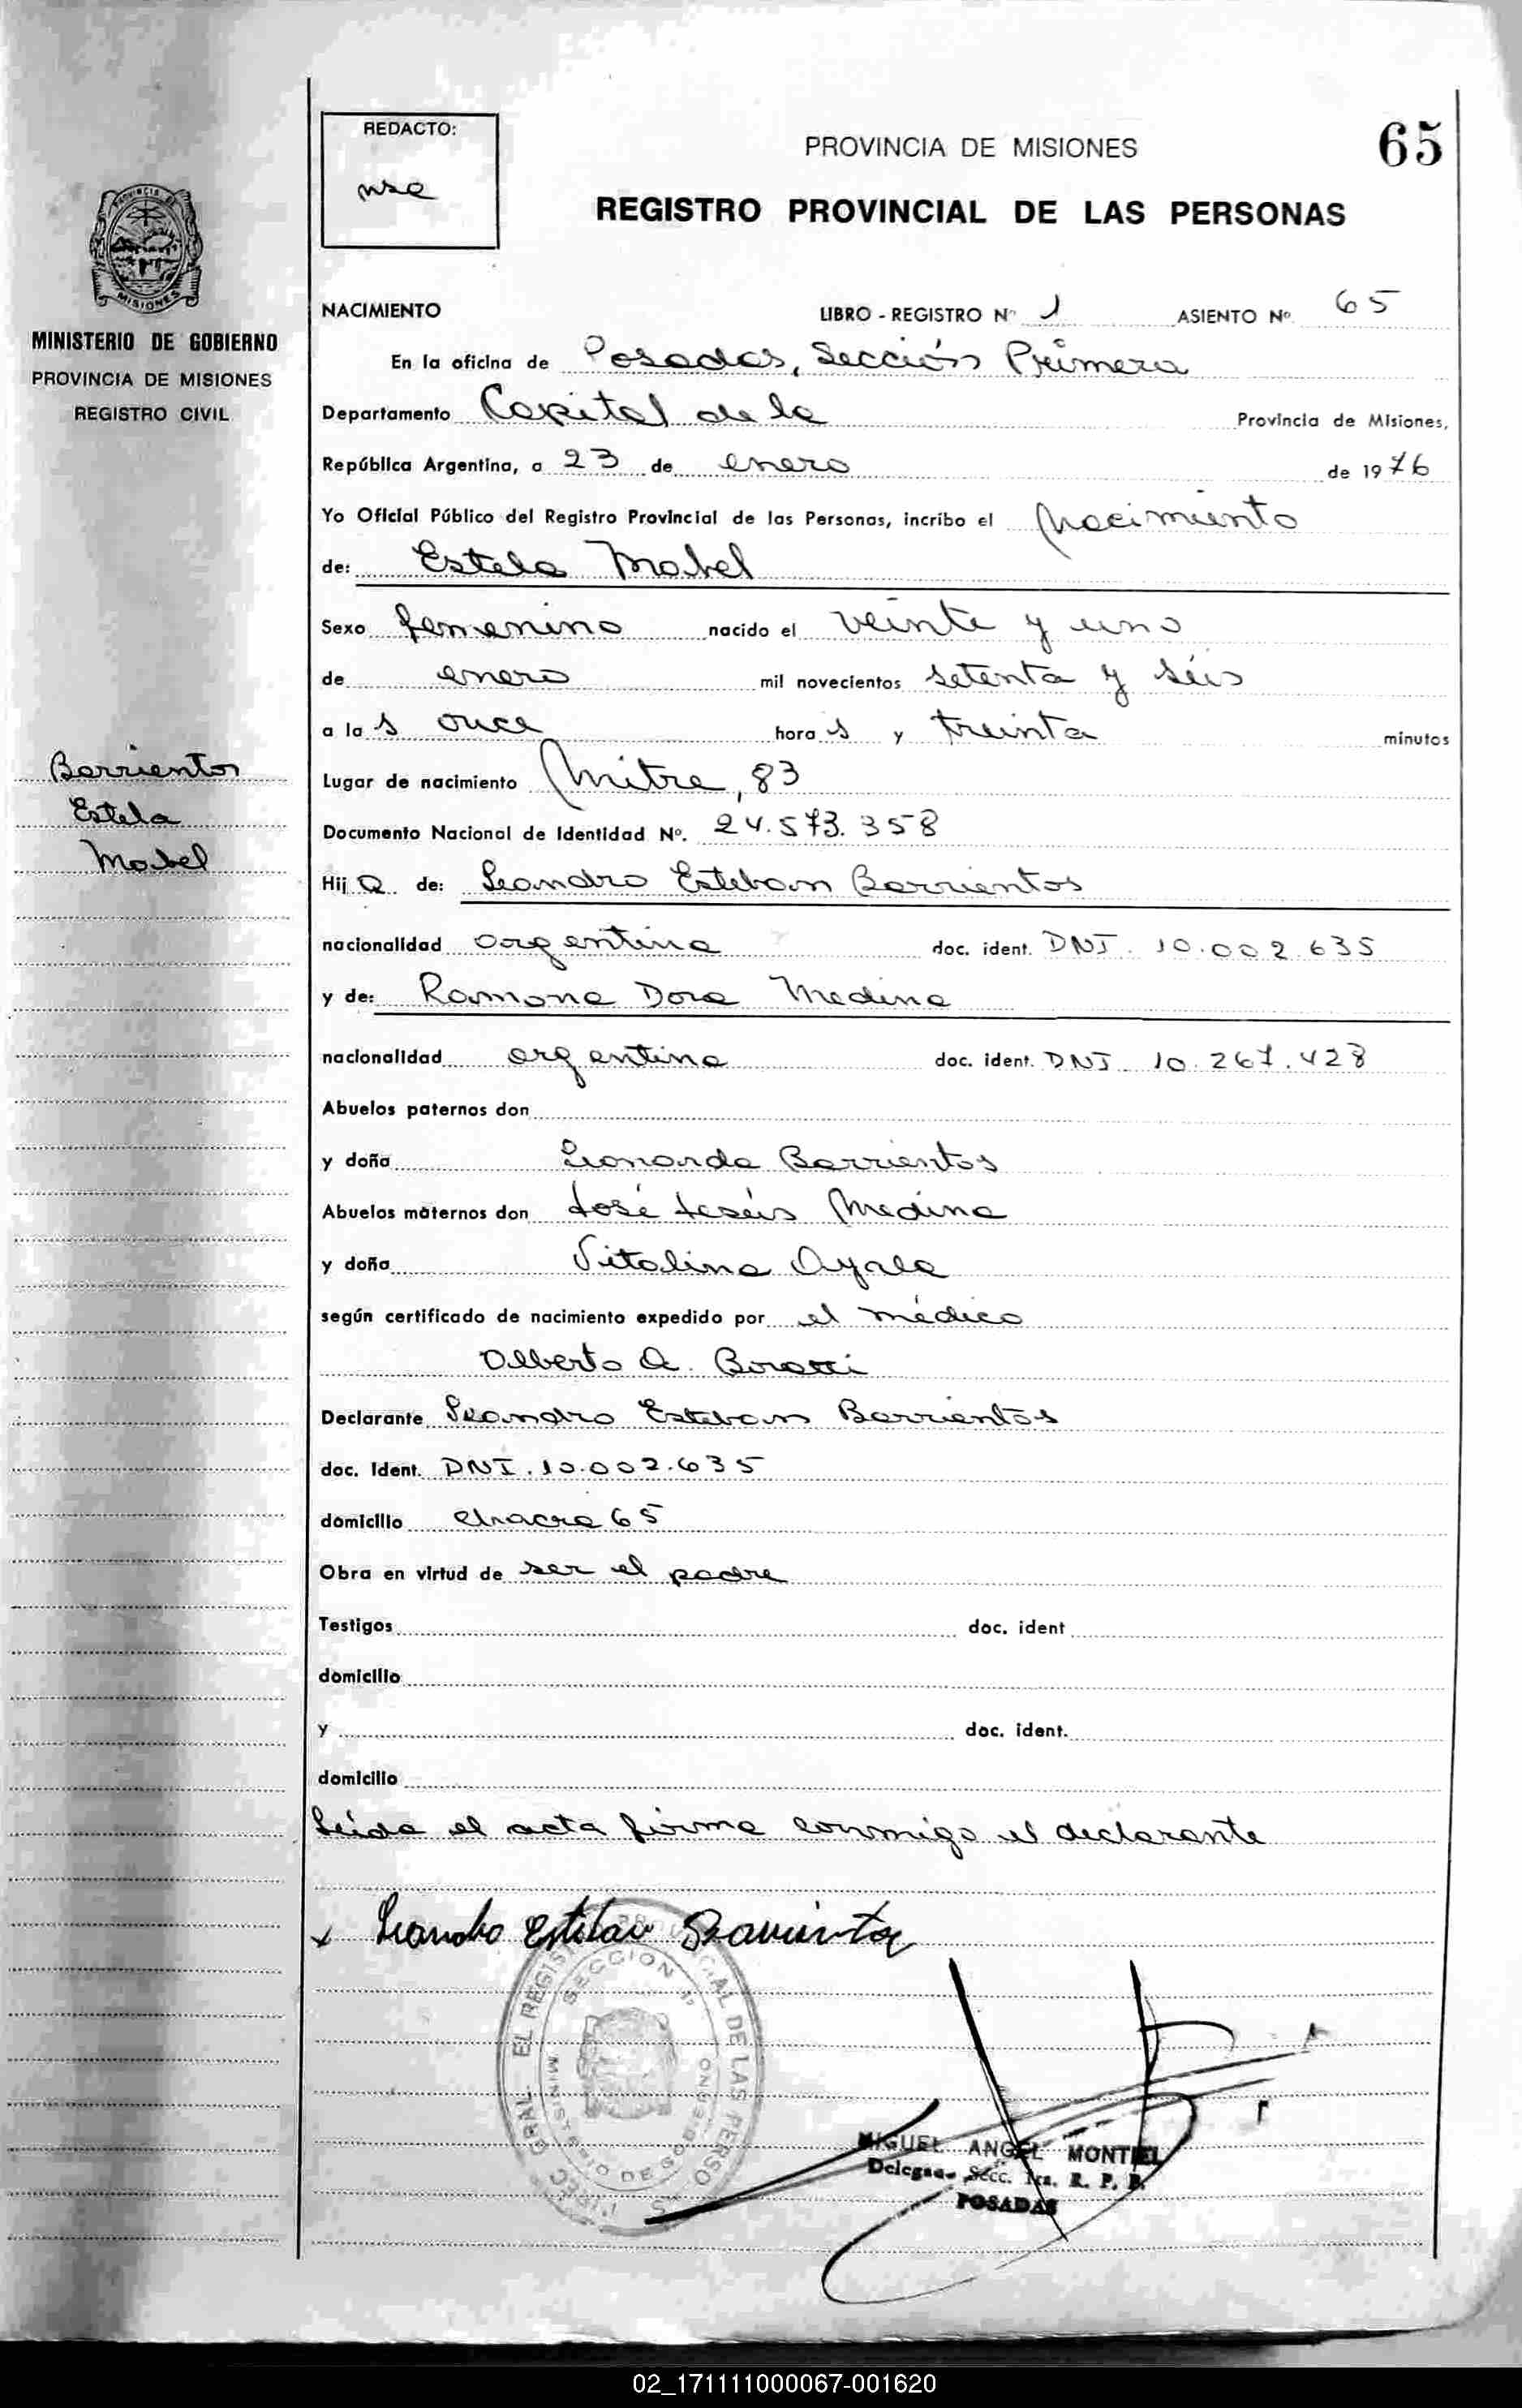 REDACTO:
PROVINCIA DE MISIONES
65
REGISTRO PROVINCIAL DE LAS PERSONAS
MISIONES
MINISTERIO DE GOBIERNO
PROVINCIA DE MISIONES
REGISTRO CIVIL
NACIMIENTO LIBRO - REGISTRO Nº 1 ASIENTO Nº 65
En la oficina de Posadas, Sección Primera
Departamento Capital de la Provincia de Misiones,
República Argentina, a 23 de enero de 1976
Yo Oficial Público del Registro Provincial de las Personas, incribo el Nacimiento
de: Estela Mabel
Sexo femenino nacido el veinte y uno
de enero mil novecientos setenta y séis
a las once horas y treinta minutos
Barrientos
Estela
Mabel
Lugar de nacimiento Mitre, 83
Documento Nacional de Identidad Nº. 24.573.358
Hija de: Leandro Esteban Barrientos
nacionalidad argentina doc. ident. DNI. 10.002.635
y de: Ramona Dora Medina
nacionalidad argentina doc. ident. DNI 10.267.428
Abuelos paternos don
y doña Leonarda Barrientos
Abuelos maternos don José Jesús Medina
y doña Vitalina Ayala
según certificado de nacimiento expedido por el médico
Alberto A.
Declarante Leandro Esteban Barrientos
doc. Ident. DNI. 10.002.635
domicilio chacra 65
Obra en virtud de ser el padre
Testigos doc. ident
domicilio
y doc. ident.
domicilio
Leída el acta firma conmigo el declarante
x Leandro Esteban Barrientos
SECCION 1ª
MINISTERIO DE GOBIERNO
MIGUEL ANGEL MONTIEL
Delegado Secc. 1ra. R. P. P.
POSADAS
02_171111000067-001620